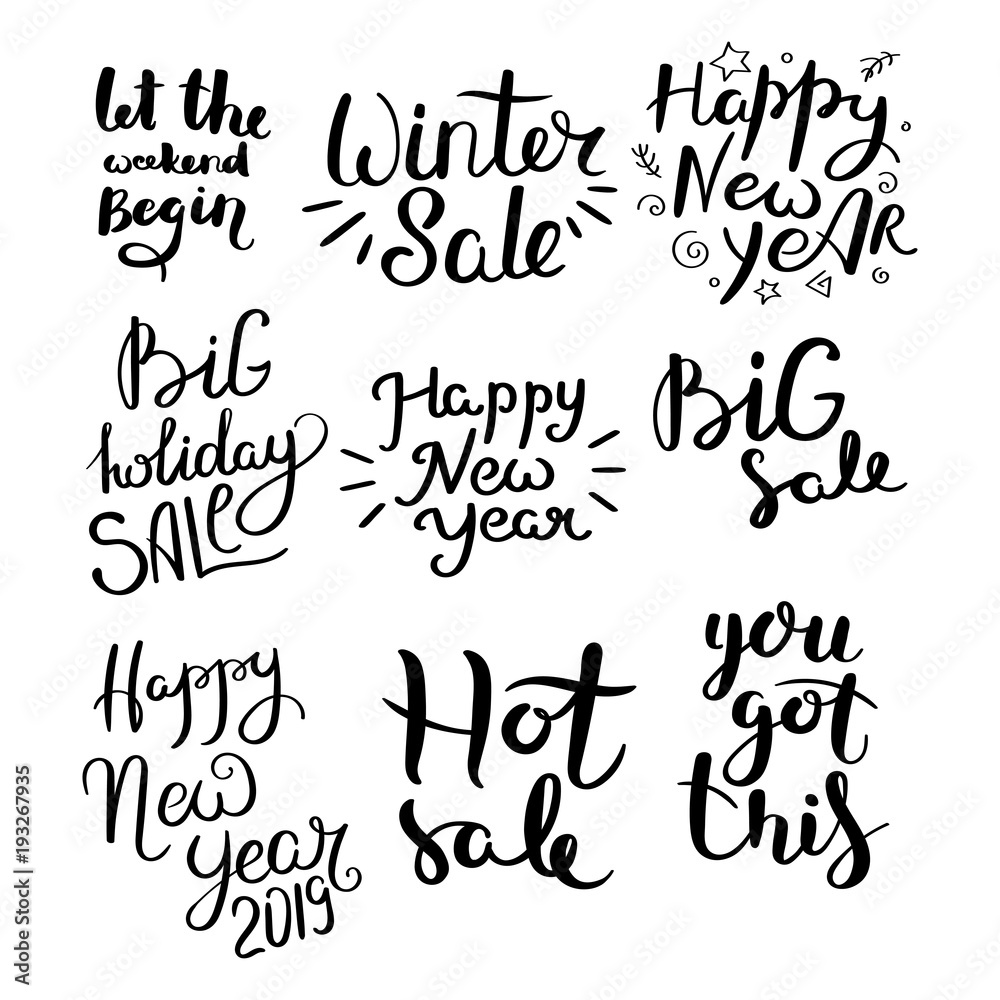 let the
weekend
Begin
Winter
Sale
Happy
New
yeAR
BiG
holiday
SALe
Happy
New
year
BiG
sale
Happy
New
year
2019
Hot
sale
you
got
this
Adobe Stock | #193267935